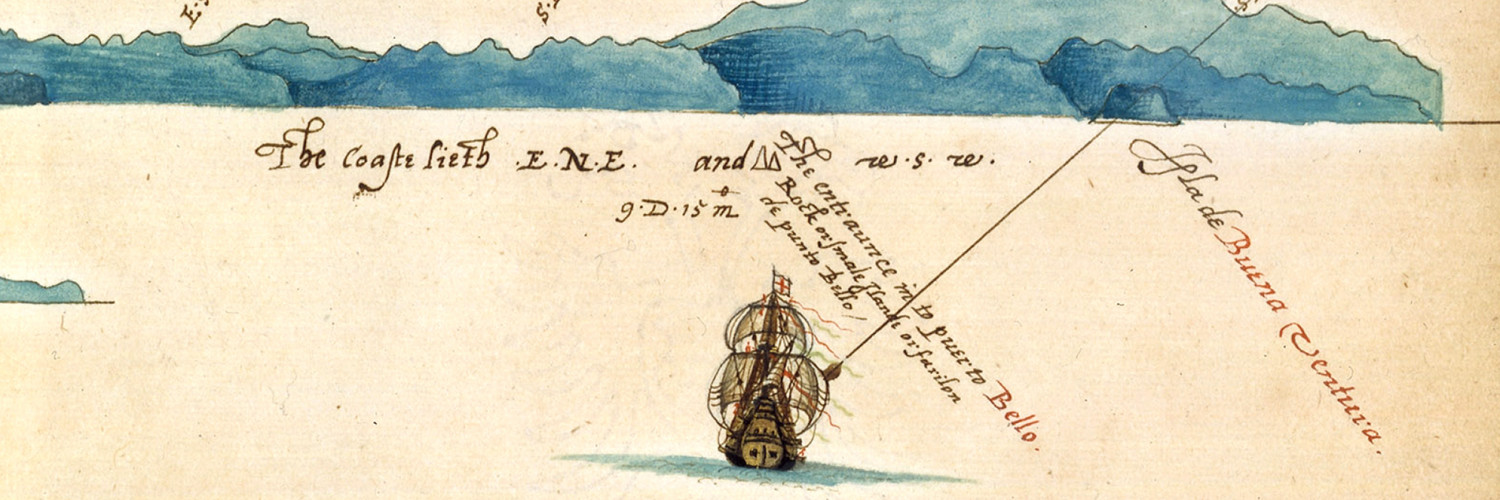 The Coaste lieth ·E·N·E· and w·s·w·
9·D·15 m
The entraunce in to puerto Bello·
Rock or smale Iland or farilon
de punto Bello /
Isla de Buena Ventura·